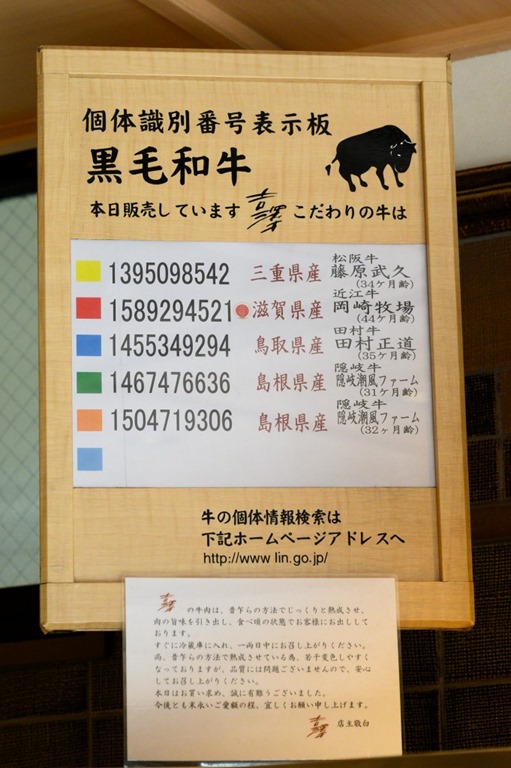 個体識別番号表示板
黒毛和牛
本日販売しています 吉澤 こだわりの牛は
1395098542 三重県産 松阪牛 藤原武久 (34ケ月齢)
1589294521 滋賀県産 近江牛 岡崎牧場 (44ケ月齢)
1455349294 鳥取県産 田村牛 田村正道 (35ケ月齢)
1467476636 島根県産 隠岐牛 隠岐潮風ファーム (31ケ月齢)
1504719306 島根県産 隠岐牛 隠岐潮風ファーム (32ヶ月齢)
牛の個体情報検索は
下記ホームページアドレスへ
http://www lin.go.jp/
吉澤 の牛肉は、昔乍らの方法でじっくりと熟成させ、
肉の旨味を引き出し、食べ頃の状態でお客様にお出しして
おります。
すぐに冷蔵庫に入れ、一両日中にお召し上がりください。
尚、昔乍らの方法で熟成させている為、若干変色しやすく
なっておりますが、品質には問題ございませんので、安心
してお召し上がりください。
本日はお買い求め、誠に有難うございました。
今後とも末永いご愛顧の程、宜しくお願い申し上げます。
吉澤 店主敬白